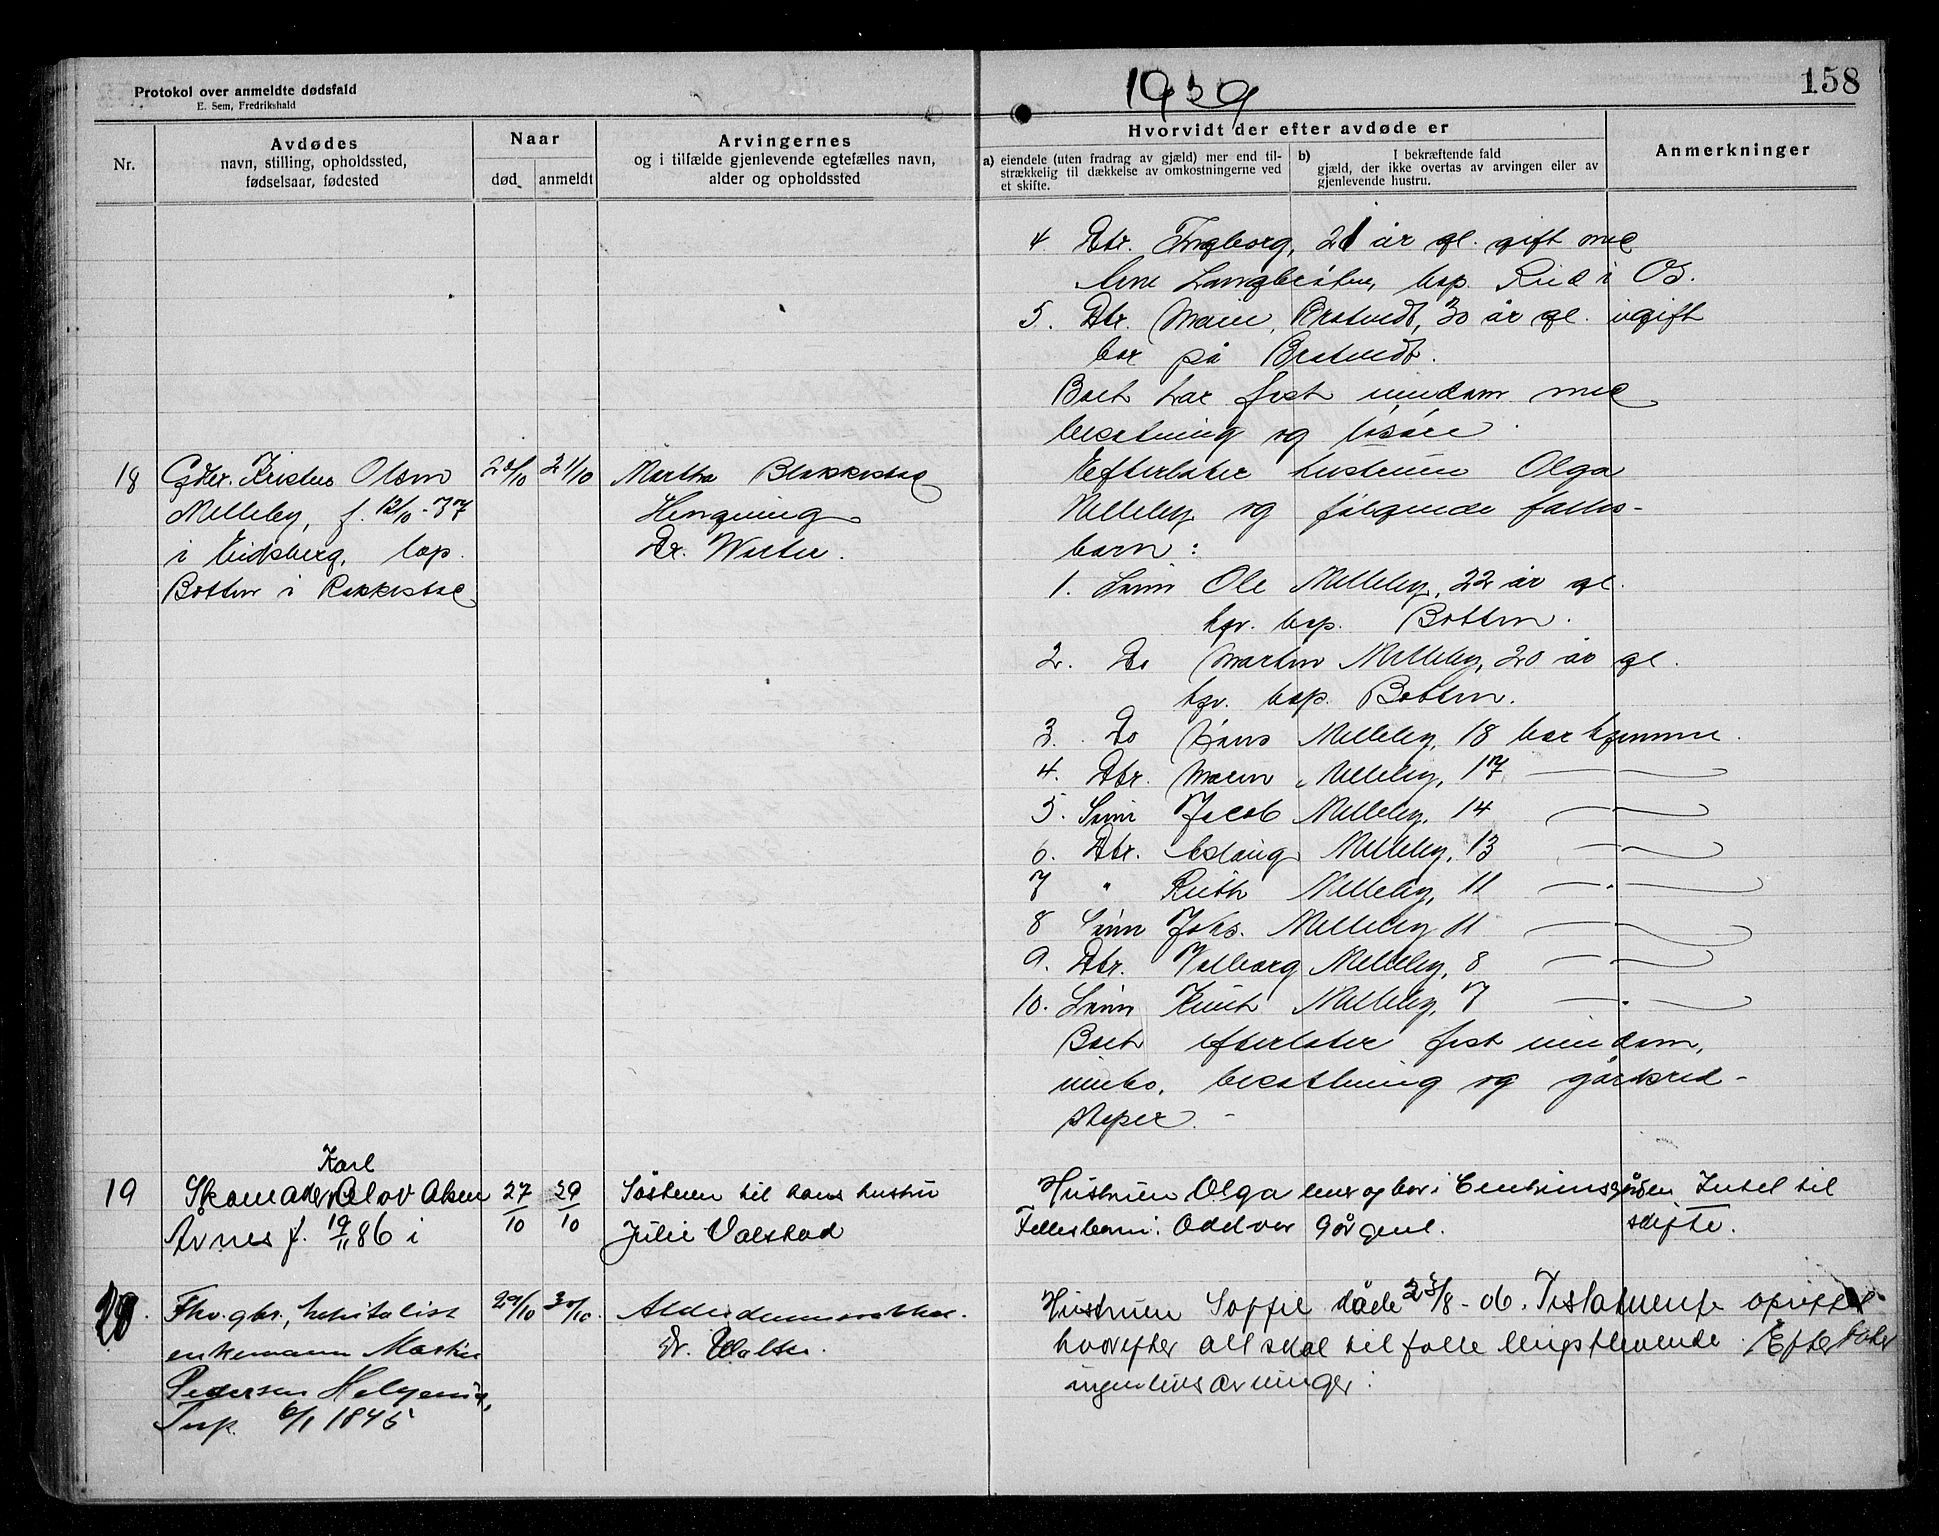 Protokol over anmeldte dødsfald
E. Sem, Fredrikshald
1939
158
Nr.
Avdødes
navn, stilling, opholdssted,
fødselsaar, fødested
Naar
død
anmeldt
Arvingernes
og i tilfælde gjenlevende egtefælles navn,
alder og opholdssted
Hvorvidt der efter avdøde er
a) eiendele (uten fradrag av gjæld) mer end til-
strækkelig til dækkelse av omkostningerne ved
et skifte.
b) I bekræftende fald
gjæld, der ikke overtas av arvingen eller av
gjenlevende hustru.
Anmerkninger
4. Dtr. Ingborg, 21 år gl. gift med
Arne bop. Rud i Os.
5. Dtr. Marie Bratvedt, 30 år gl. ugift
bor på Bratvedt.
Boet har fast eiendom med
besetning og løsøre.
18 Gbr. Kristen Olsen
Melleby, f. 12/10-
i Eidsberg, bop.
Botten i Rakkestad
21/10
Martha Blakkestad
Dr. Walter.
Efterlater hustruen Olga
Melleby og følgende felles-
barn:
1. Sønn Ole Melleby, 22 år gl.
hjv. bop. Botten.
2. Do Martin Melleby, 20 år gl.
hjv. bop. Botten.
3. Do Hans Melleby, 18 bor hjemme.
4. Dtr. Maren Melleby, 17 — " —
5. Sønn Jacob Melleby, 14 — " —
6. Dtr. Aslaug Melleby, 13 — " —
7 " Ruth Melleby, 11 — " —
8 Sønn Johs. Melleby 11 — " —
9. Dtr. Valborg Melleby, 8 — " —
10. Sønn Knut Melleby, 7 — " —
Boet efterlater fast eiendom,
innbo, besetning og gårdsred-
skaper. -
19 Skomaker Karl Olov Olsen
Årnes f. 19/11 86 i
27/10
29/10
Søsteren til hans hustru
Julie Valstad
Hustruen Olga lever og bor i Centrumsgården
Fellesbarn: Oddvar 9 år gml.
Intet til
skifte.
20. Fhv. gbr., kapitalist
enkemann Martin
Pedersen
6/1 1845
29/10
30/10.
Dr. Walter.
Hustruen Soffie døde 8 - 06. Testamente oprettet
hvorefter alt skal tilfalle lengstlevende. Efterlater
ingen livsarvinger.